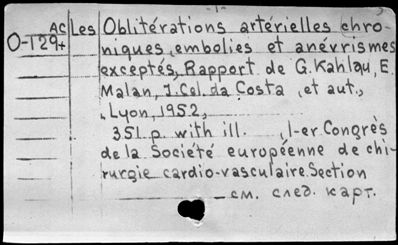 AC Les Oblitérations artérielles chro-
O-129+ niques, embolies et anévrismes
exceptés, Rapport de G. Kahlau, E.
Malan, J. Cel. da Costa, et aut.,
Lyon, 1952,
351 p. with ill. 1-er Congrès
de la Société européenne de chi-
rurgie cardio-vasculaire. Section
см. след. карт.